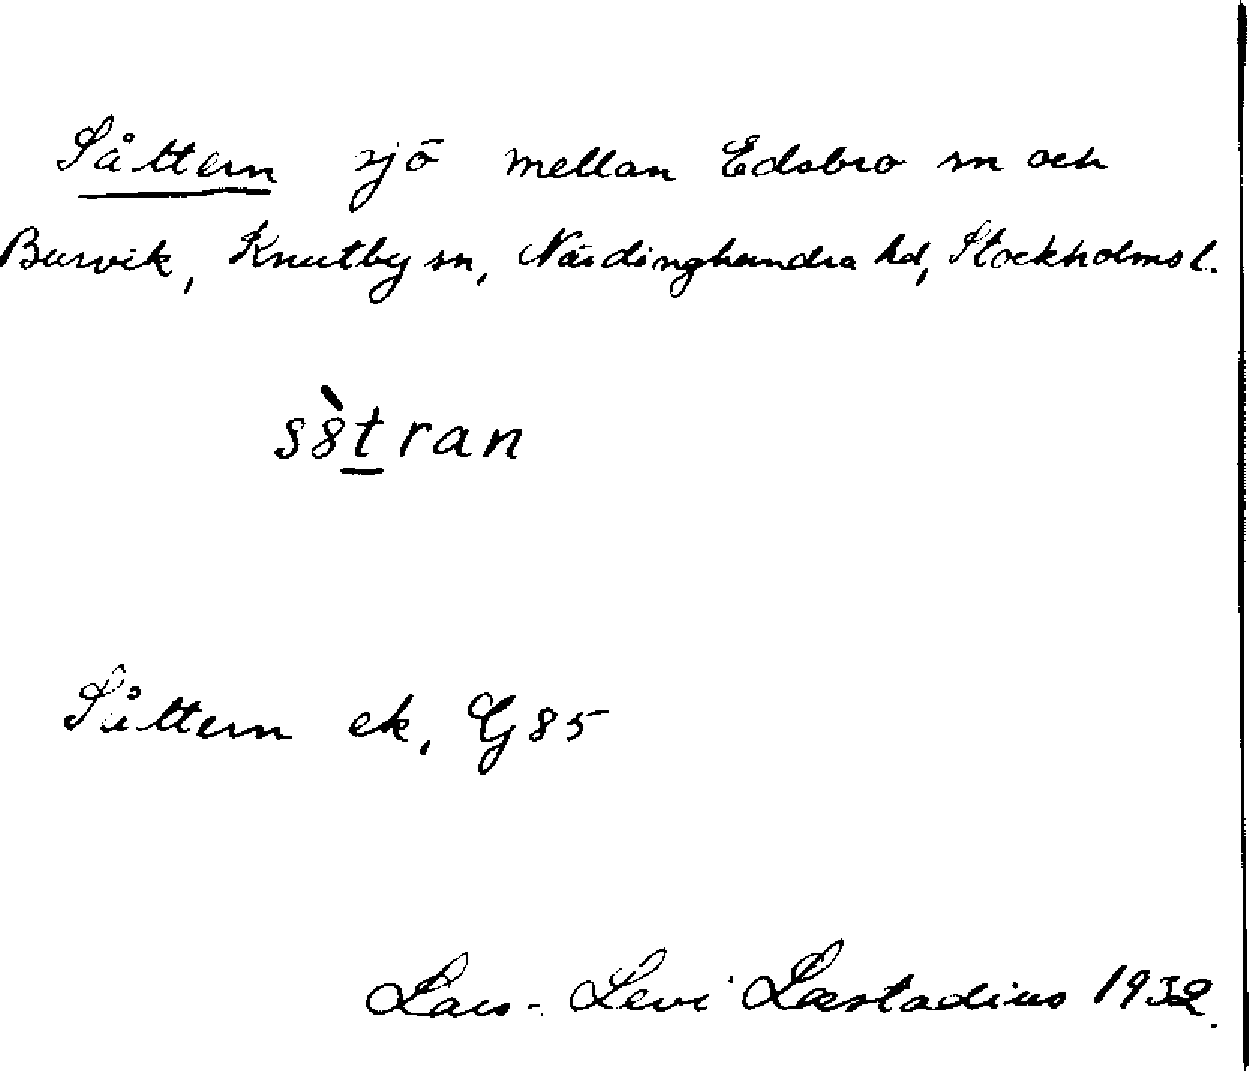 Såttern sjö mellan Edsbro sn och
Burvik, Knutby sn, Närdinghundra hd, Stockholms l.
s8̀t̲ran
Såttern ek, G 85
Lars-Levi Læstadius 1932.